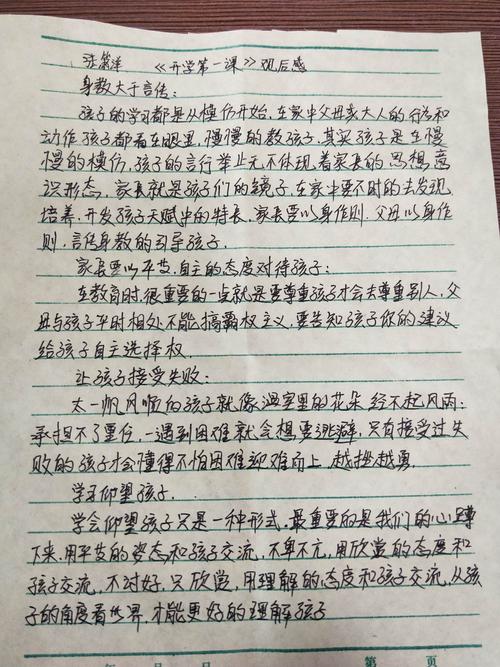 《开学第一课》观后感
身教大于言传：
孩子的学习都是从模仿开始，在家中父母亲大人的行为和
动作孩子都看在眼里，慢慢的教孩子，其实孩子是在慢
慢的模仿，孩子的言行举止无不体现着家长的思想，意
识形态，家长就是孩子们的镜子，在家中要不时的去发现
培养，开发孩子天赋中的特长，家长要以身作则，父母以身作
则，言传身教的引导孩子，
家长要以平等，自主的态度对待孩子：
在教育时，很重要的一点就是要尊重孩子才会去尊重别人，父
母与孩子平时相处不能搞霸权主义，要告知孩子你的建议
给孩子自主选择权．
让孩子接受失败：
太一帆风顺的孩子就像温室里的花朵经不起风雨；
承担不了重任，一遇到困难就会想要逃避，只有接受过失
败的孩子才会懂得不怕困难迎难而上，越挫越勇．
学习仰望孩子．
学会仰望孩子只是一种形式，最重要的是我们的心蹲
下来，用平等的姿态和孩子交流，不卑不亢，用欣赏的态度和
孩子交流，不讨好，只欣赏，用理解的态度和孩子交流，从孩
子的角度看世界，才能更好的理解孩子
年 月 日 第 页